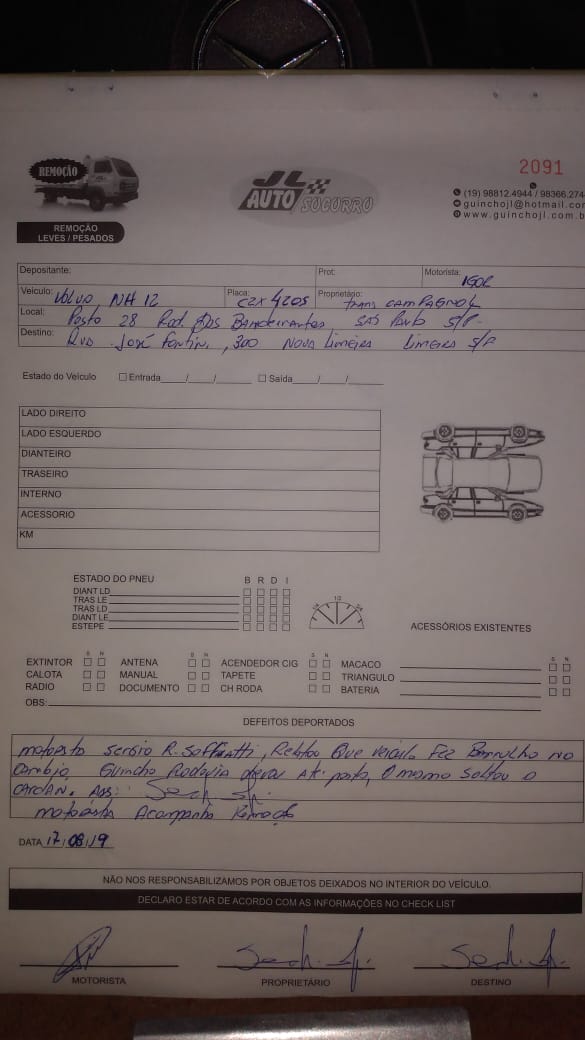 2091
REMOÇÃO
JL AUTO SOCORRO
(19) 98812.4944 / 98366.274
guinchojl@hotmail.com
www.guinchojl.com.b
REMOÇÃO
LEVES / PESADOS
Depositante: Prot: Motorista: IGOR
Veiculo: VOLVO NH 12 Placa: CZX 4205 Proprietário: TRANS CAMPAGNOL
Local: Posto 28 Rod. dos Bandeirantes, SÃO Paulo S/P.
Destino: Rua José Fontin, 300 Nova Limeira Limeira S/P
Estado do Veículo Entrada / / Saída / /
LADO DIREITO
LADO ESQUERDO
DIANTEIRO
TRASEIRO
INTERNO
ACESSORIO
KM
ESTADO DO PNEU B R D I
DIANT LD
TRAS LE
TRAS LD
DIANT LE
ESTEPE
1/2
ACESSÓRIOS EXISTENTES
S N S N S N S N
EXTINTOR ANTENA ACENDEDOR CIG MACACO
CALOTA MANUAL TAPETE TRIANGULO
RADIO DOCUMENTO CH RODA BATERIA
OBS:
DEFEITOS DEPORTADOS
motorista Sergio R. , Relatou Que veiculo Fez Barrulho no
Cambio, Guincho Rodovia até posto, O mesmo Soltou o
CARDAN. Ass:
motorista Acompanha Remoção
DATA 17/08/19
NÃO NOS RESPONSABILIZAMOS POR OBJETOS DEIXADOS NO INTERIOR DO VEÍCULO.
DECLARO ESTAR DE ACORDO COM AS INFORMAÇÕES NO CHECK LIST
MOTORISTA PROPRIETÁRIO DESTINO